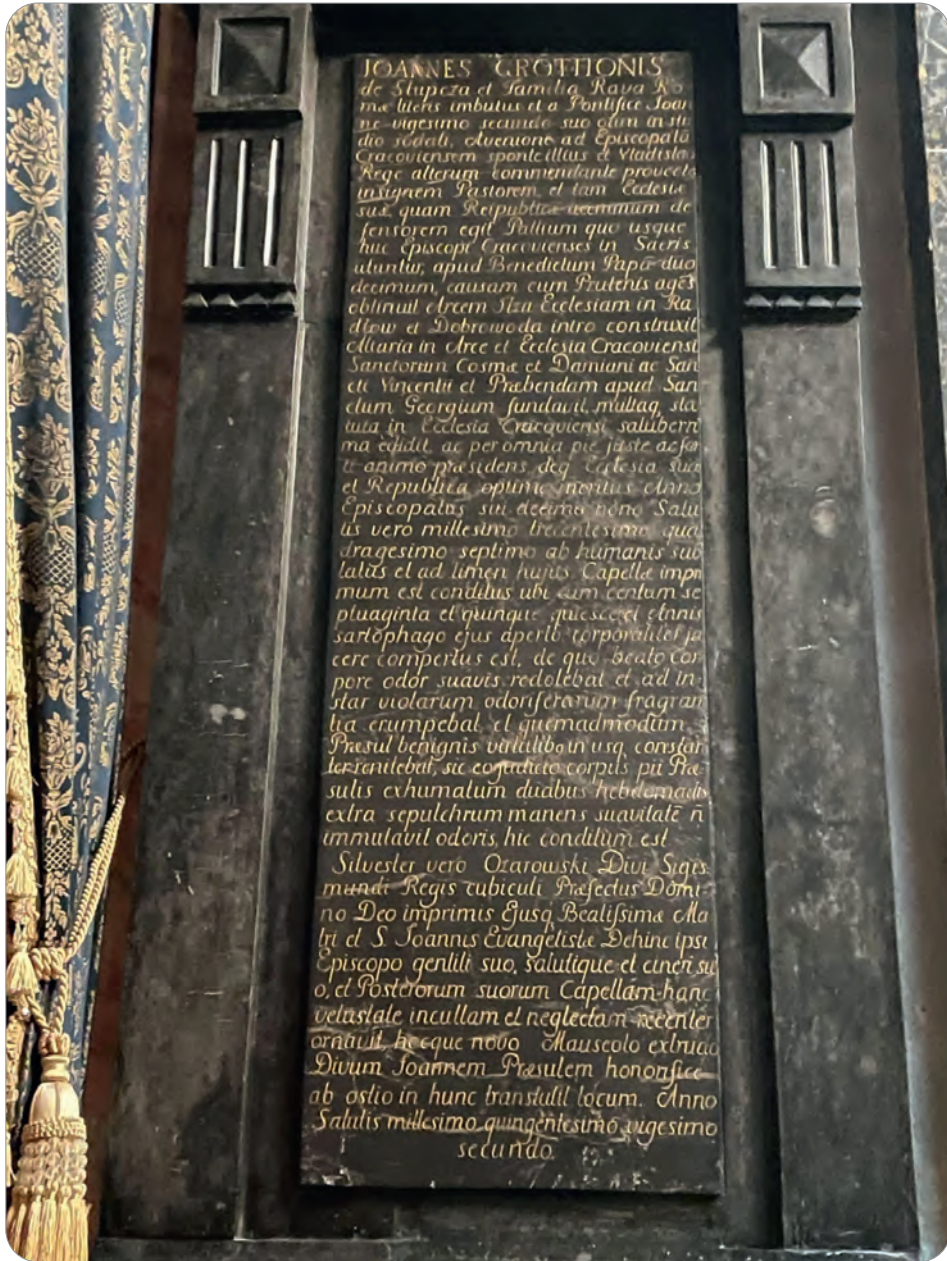 JOANNES GROTTIONIS
de Slupcza et Familia Rava Ro
mæ literis imbutus et a Pontifice Joan
ne vigesimo secundo suo olim in stu
dio sodali, Avenione ad Episcopatū
Cracoviensem spontè illius et Vladislao
Rege alterum commendante provecto
insignem Pastorem, et tam Ecclesiæ
suæ quam Reipublicæ acerrimum de
fensorem egit Pallium quo usque
huc Episcopi Cracovienses in Sacris
utuntur, apud Benedictum Papā duo
decimum, causam cum Prutenis agēs
obtinuit Arcem Ilzu Ecclesiam in Ra
dłow et Dobrowoda intro construxit
Altaria in Arce et Ecclesia Cracoviensi
Sanctorum Cosmæ et Damiani ac San
cti Vincentii et Præbendam apud San
ctum Georgium fundavit, multaq, sta
tuta in Ecclesia Cracoviensi saluberri
ma edidit, ac per omnia pie juste ac for
ti animo præsidens, deq Ecclesia sua
et Republica optime meritus Anno
Episcopatus sui decimo nono Salu
tis vero millesimo trecentesimo qua
dragesimo septimo ab humanis sub
latus et ad limen hujus Capellæ impri
mum est conditus ubi cum centum se
ptuaginta et quinque quiesceret Annis
sartophago ejus aperto corporaliter ja
cere compertus est, de quo beato cor
pore odor suavis redolebat et ad in
star violarum odoriferarum fragran
tia erumpebat, et quemadmodum
Præsul benignis virtutibo in usq constan
ter renitebat, sic corpus pii Præ
sulis exhumatum duabus hebdomadis
extra sepulchrum manens suavitatē ñ
immutavit odoris, hic conditum est
Silvester vero Ożarowski Divi Sigis
mundi Regis cubiculi Præfectus Domi
no Deo imprimis Ejusq Beatissimæ Ma
tri et S. Joannis Evangelistæ Dehinc ipsi
Episcopo gentili suo, salutique et cineri su
o, et Posterorum suorum Capellam hanc
vetustate incultam et neglectam recenter
ornavit, hocque novo Mauseolo extructo
Divum Joannem Præsulem honorifice
ab ostio in hunc transtulit locum. Anno
Salutis millesimo quingentesimo vigesimo
secundo.